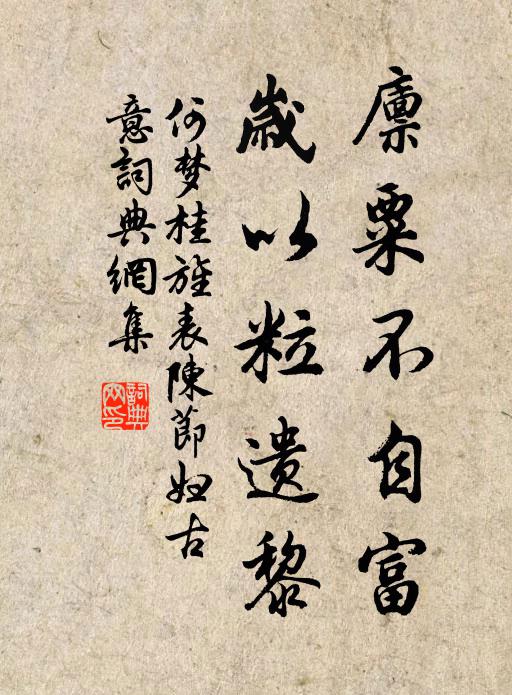 廪粟不自富
歲以粒遺黎
何梦桂旌表陳節婦古
意詞典網集
詞典網印